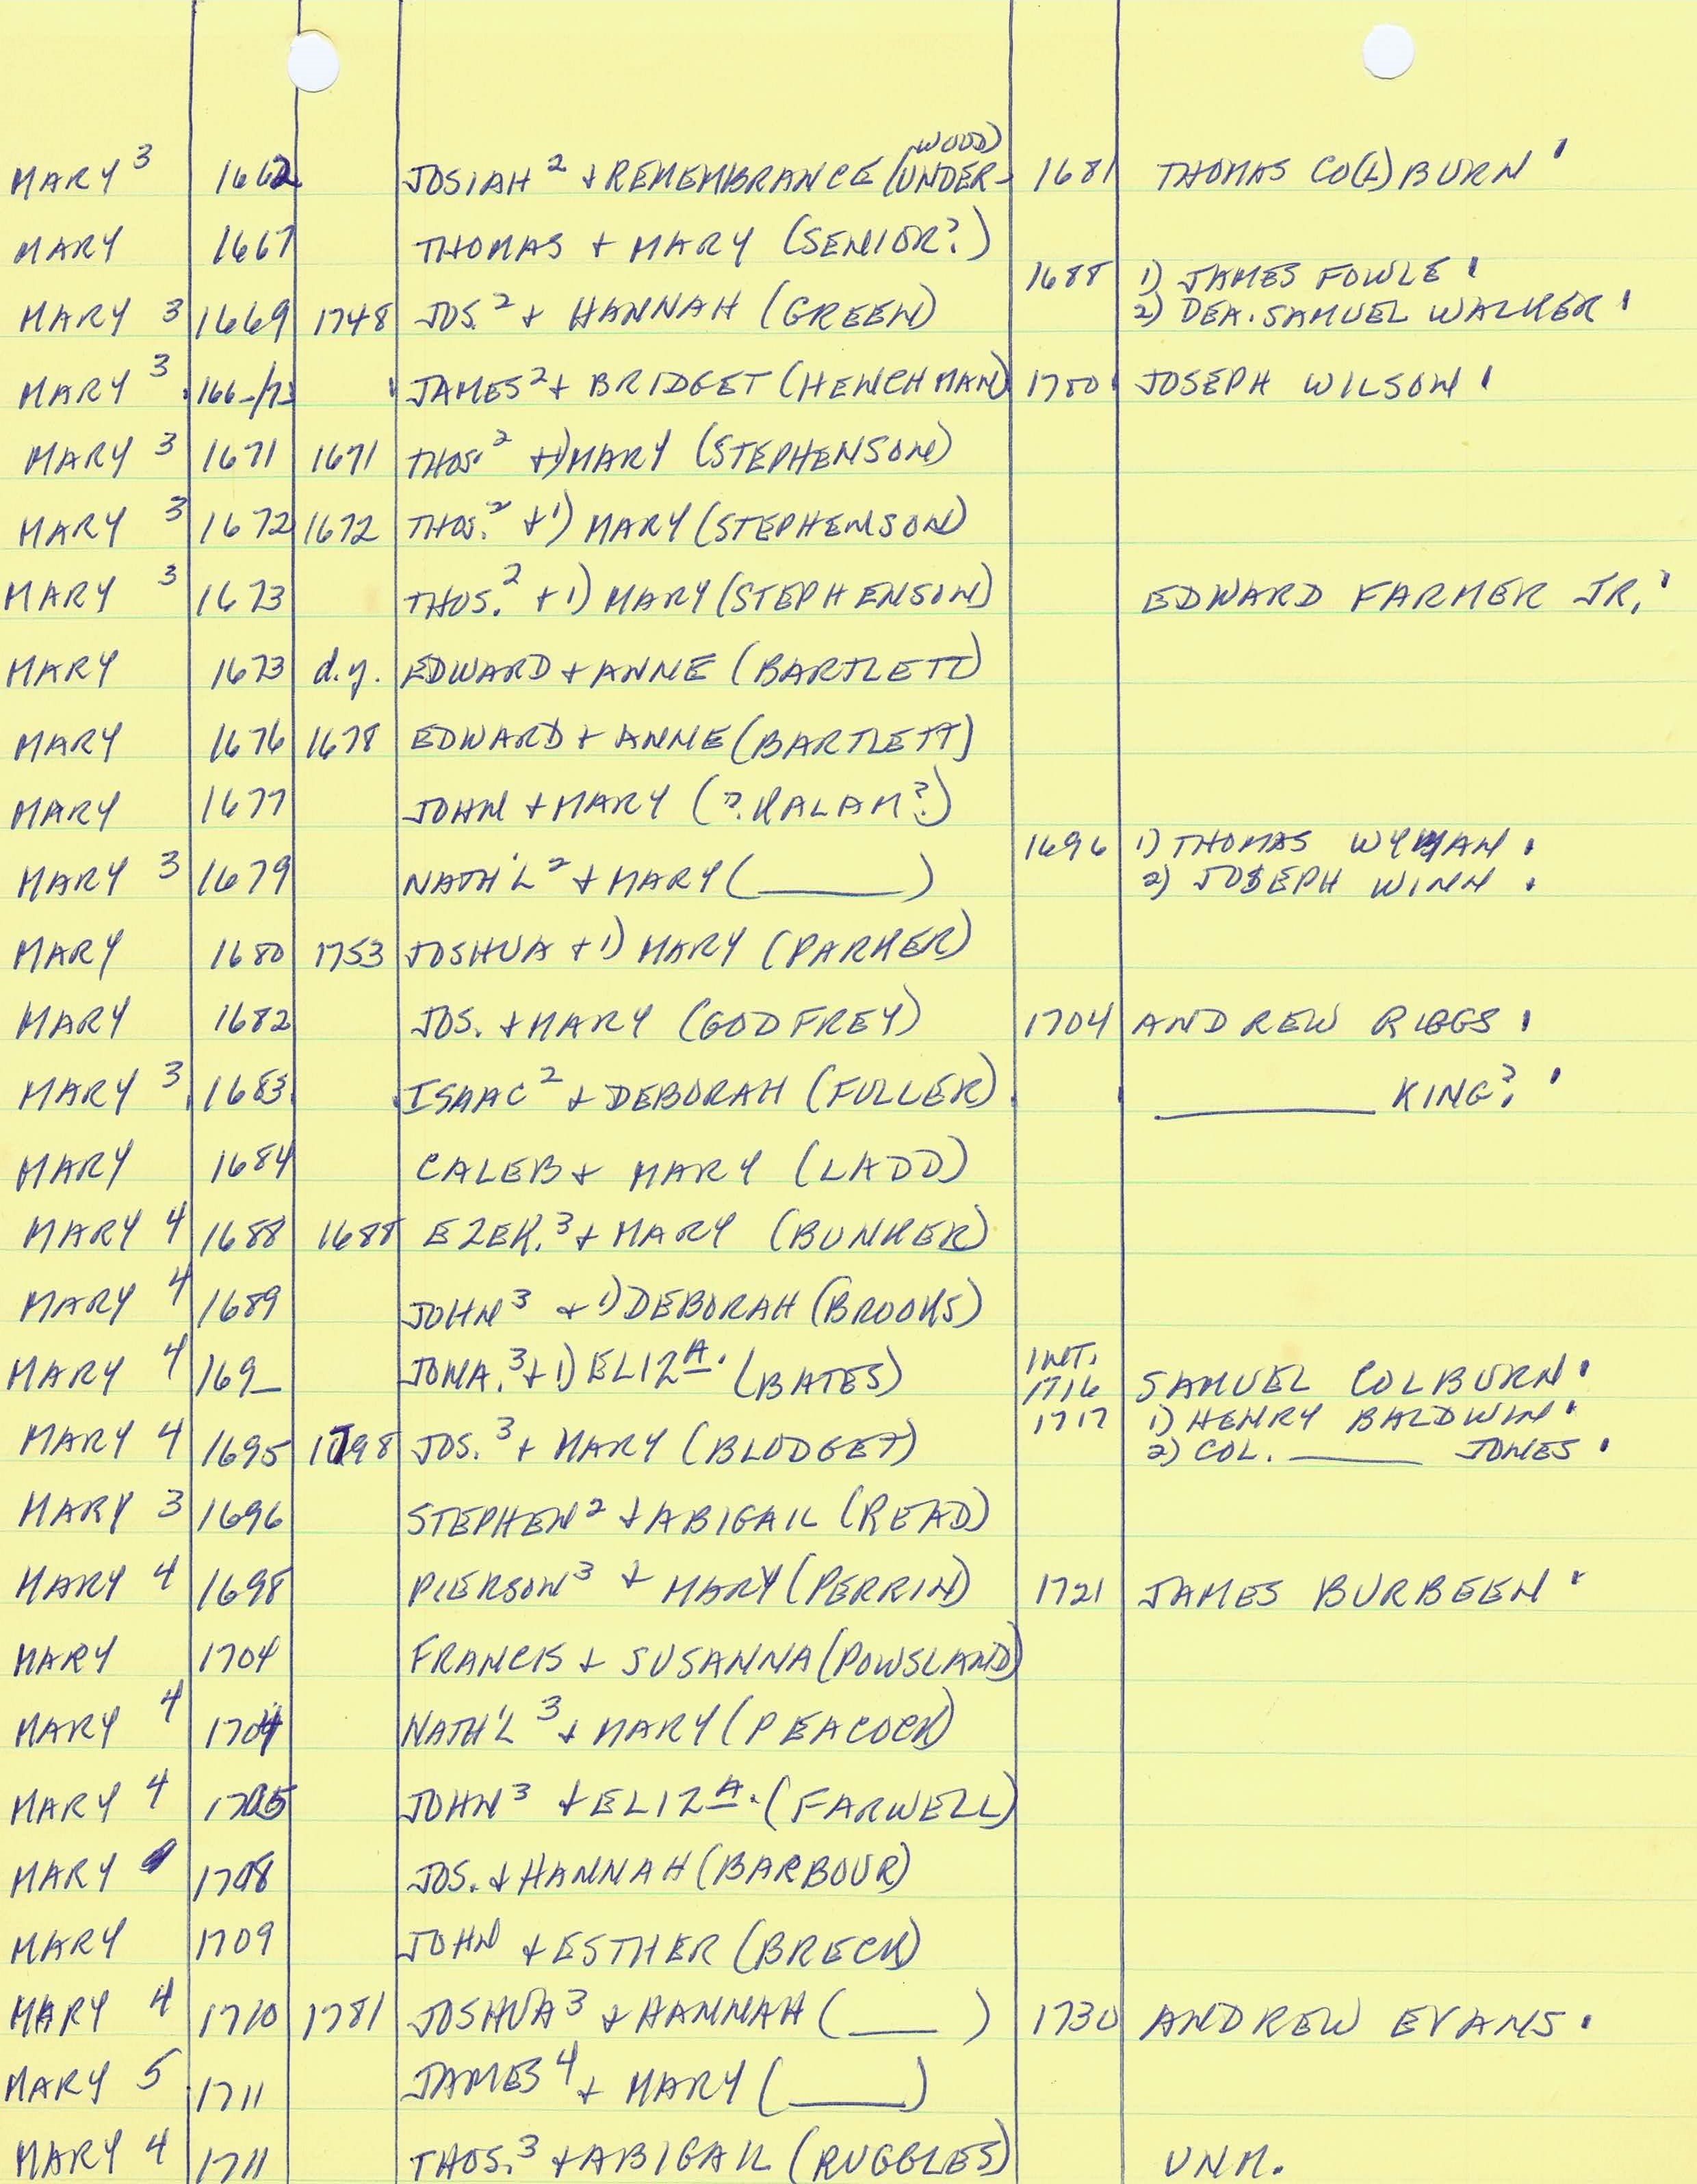 MARY 3 1662 JOSIAH 2 + REMEMBRANCE (UNDER-WOOD) 1681 THOMAS CO(L)BURN
MARY 1667 THOMAS + MARY (SENIOR?)
1688 1) JAMES FOWLE
MARY 3 1669 1748 JOS. 2 + HANNAH (GREEN) 2) DEA. SAMUEL WALKER
MARY 3 166_/73 JAMES 2 + BRIDGET (HENCHMAN) 1700 JOSEPH WILSON
MARY 3 1671 1671 THOS. 2 + 1) MARY (STEPHENSON)
MARY 3 1672 1672 THOS. 2 + 1) MARY (STEPHENSON)
MARY 3 1673 THOS. 2 + 1) MARY (STEPHENSON) EDWARD FARMER JR.
MARY 1673 d.y. EDWARD + ANNE (BARTLETT)
MARY 1676 1678 EDWARD + ANNE (BARTLETT)
MARY 1677 JOHN + MARY (?KALAM?)
1696 1) THOMAS WYMAN
MARY 3 1679 NATH'L 2 + MARY (______) 2) JOSEPH WINN
MARY 1680 1753 JOSHUA + 1) MARY (PARKER)
MARY 1682 JOS. + MARY (GODFREY) 1704 ANDREW RIGGS
MARY 3 1683 ISAAC 2 + DEBORAH (FULLER) ________ KING?
MARY 1684 CALEB + MARY (LADD)
MARY 4 1688 1688 EZEK. 3 + MARY (BUNKER)
MARY 4 1689 JOHN 3 + 1) DEBORAH (BROOKS)
MARY 4 169_ JONA. 3 + 1) ELIZA. (BATES) INT. 1716 SAMUEL COLBURN
1717 1) HENRY BALDWIN
MARY 4 1695 1798 JOS. 3 + MARY (BLODGET) 2) COL. ______ JONES
MARY 3 1696 STEPHEN 2 + ABIGAIL (READ)
MARY 4 1698 PIERSON 3 + MARY (PERRIN) 1721 JAMES BURBEEN
MARY 1704 FRANCIS + SUSANNA (POWSLAND)
MARY 4 1704 NATH'L 3 + MARY (PEACOCK)
MARY 4 1705 JOHN 3 + ELIZA. (FARWELL)
MARY 1708 JOS. + HANNAH (BARBOUR)
MARY 1709 JOHN + ESTHER (BRECK)
MARY 4 1710 1781 JOSHUA 3 + HANNAH (____) 1730 ANDREW EVANS
MARY 5 1711 JAMES 4 + MARY (______)
MARY 4 1711 THOS. 3 + ABIGAIL (RUGGLES) UNM.